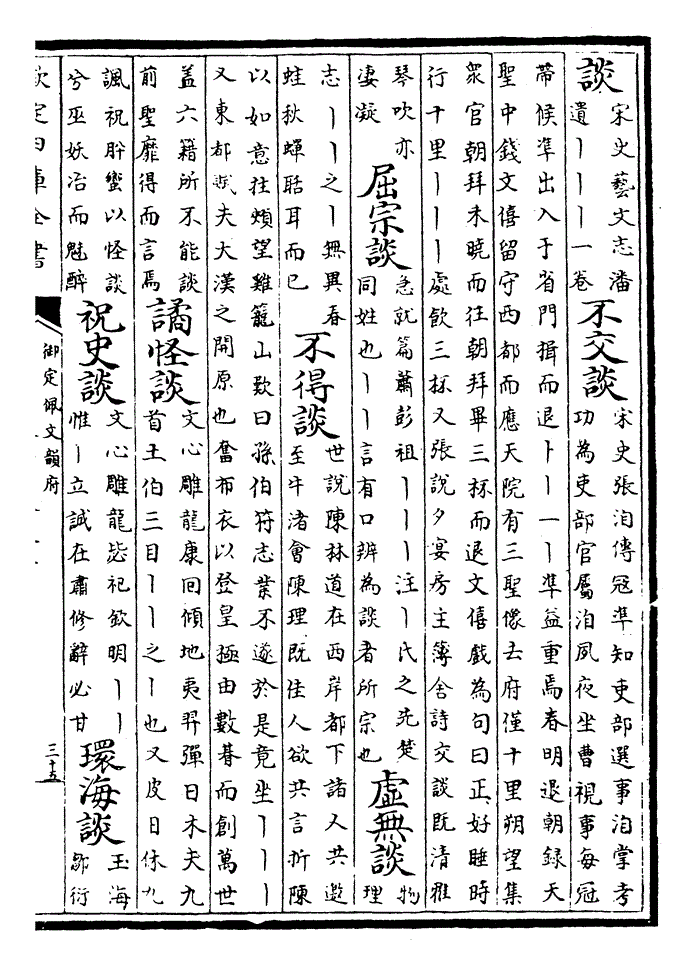 談
宋史藝文志潘
遺｜｜｜一卷
不交談
宋史張洎傳冦準知吏部選事洎掌考
功為吏部官屬洎夙夜坐曹視事每冠
帶候準出入于省門揖而退｜｜一｜準益重焉春明退朝録天
聖中錢文僖留守西都而應天院有三聖像去府僅十里朔望集
衆官朝拜未曉而往朝拜畢三杯而退文僖戲為句曰正好睡時
行十里｜｜｜處飲三杯又張說夕宴房主簿舍詩交談既清雅
琴吹亦
淒凝
屈宗談
急就篇蕭彭祖｜｜｜注｜氏之先楚
同姓也｜｜言有口辨為談者所宗也
虛無談
物
理
志｜｜之｜無異春
蛙秋蟬聒耳而已
不得談
世說陳林道在西岸都下諸人共邀
至牛渚會陳理既佳人欲共言折陳
以如意拄頰望雞籠山歎曰孫伯符志業不遂於是竟坐｜｜｜
又東都賦夫大漢之開原也奮布衣以登皇極由數朞而創萬世
蓋六籍所不能談
前聖靡得而言焉
譎怪談
文心雕龍康回傾地夷羿彈日木夫九
首土伯三目｜｜之｜也又皮日休九
諷祝肸蠁以怪談
兮巫妖冶而魅醉
祝史談
文心雕龍毖祀欽明｜｜
惟｜立誠在肅修辭必甘
環海談
玉海
鄒衍
欽定四庫全書
御定佩文韻府
三十五